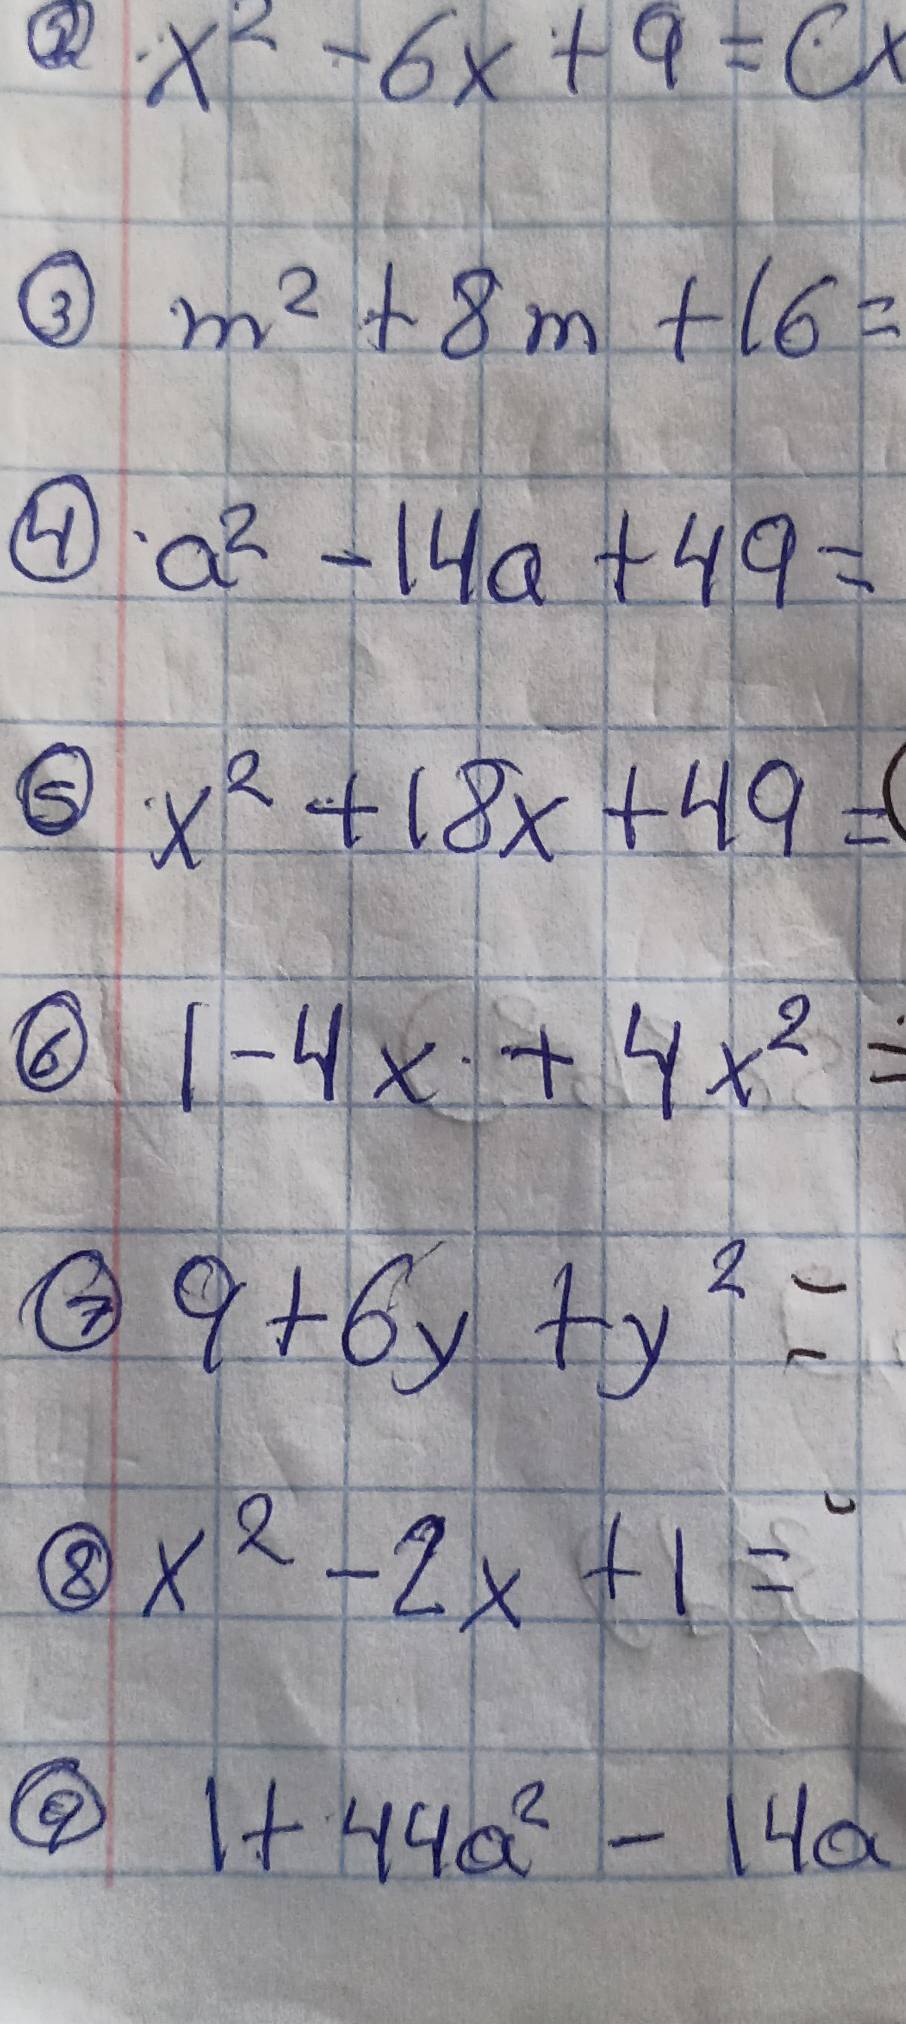 ② x² - 6x + 9 = (x
③ m² + 8m + 16 =
④ a² - 14a + 49 =
⑤ x² + 18x + 49 = (
⑥ 1 - 4x + 4x² =
⑦ 9 + 6y + y² =
⑧ x² - 2x + 1 =
⑨ 1 + 44a² - 14a